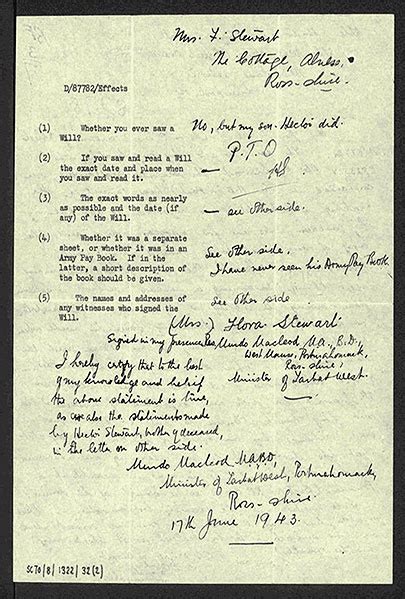 Mrs. F. Stewart
The Cottage, Alness.
Ross-shire.
D/87782/Effects
(1) Whether you ever saw a
Will?
No, but my son Hector did.
P.T.O
(2) If you saw and read a Will
the exact date and place when
you saw and read it.
—
(3) The exact words as nearly
as possible and the date (if
any) of the Will.
— see other side.
(4) Whether it was a separate
sheet, or whether it was in an
Army Pay Book. If in the
latter, a short description of
the book should be given.
See other side.
I have never seen his Army Pay Book.
(5) The names and addresses of
any witnesses who signed the
Will.
see other side
(Mrs.) Flora Stewart
Signed in my presence Mundo Macleod M.A., B.D.,
West Manse, Portmahomack,
Ross-shire,
Minister of Tarbat West.
I hereby certify that to the best
of my knowledge and belief
the above statement is true,
as are also the statements made
by Hector Stewart, brother of deceased,
in the letter on other side.
Mundo Macleod M.A. B.D.,
Minister of Tarbat West, Portmahomack,
Ross-shire
17th June 1943.
SC70/8/1322/32(2)